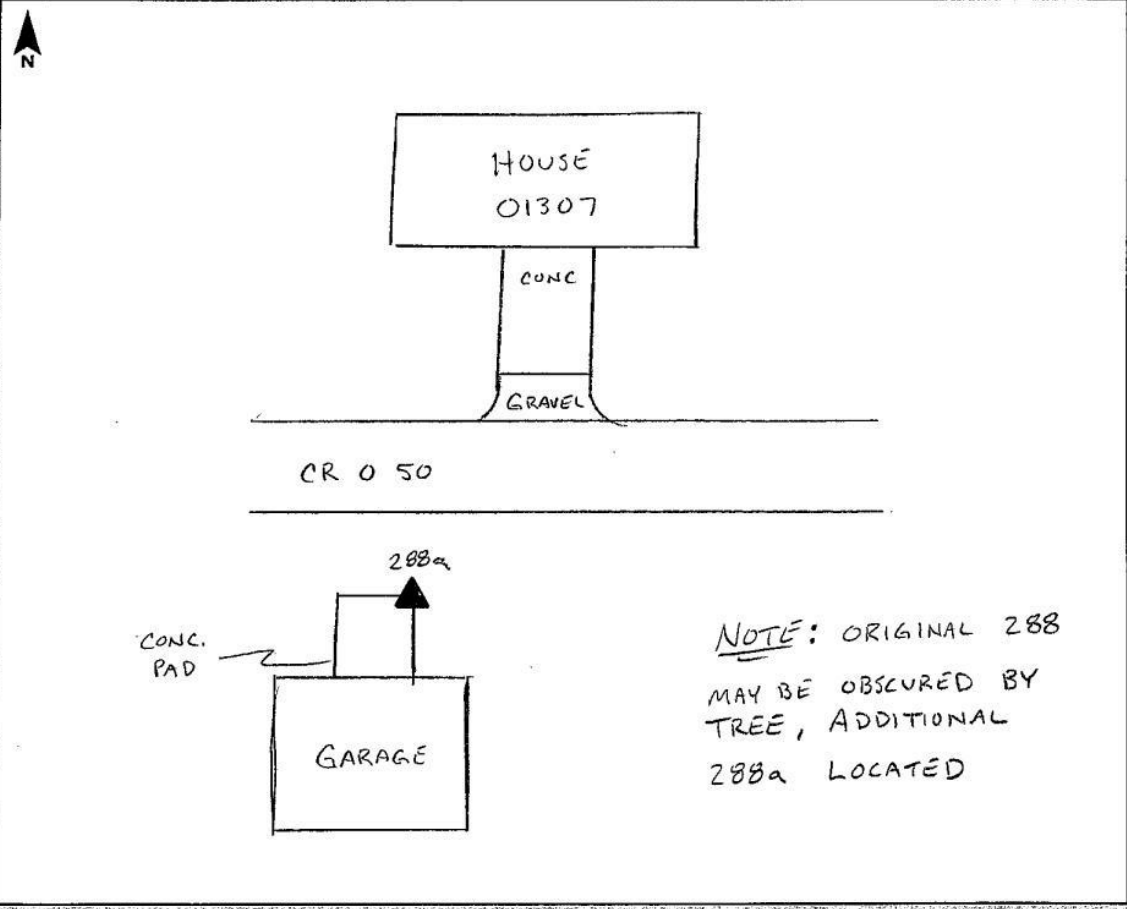 N
HOUSE
01307
CONC
GRAVEL
CR 0 50
288a
CONC.
PAD
GARAGE
NOTE: ORIGINAL 288
MAY BE OBSCURED BY
TREE, ADDITIONAL
288a LOCATED